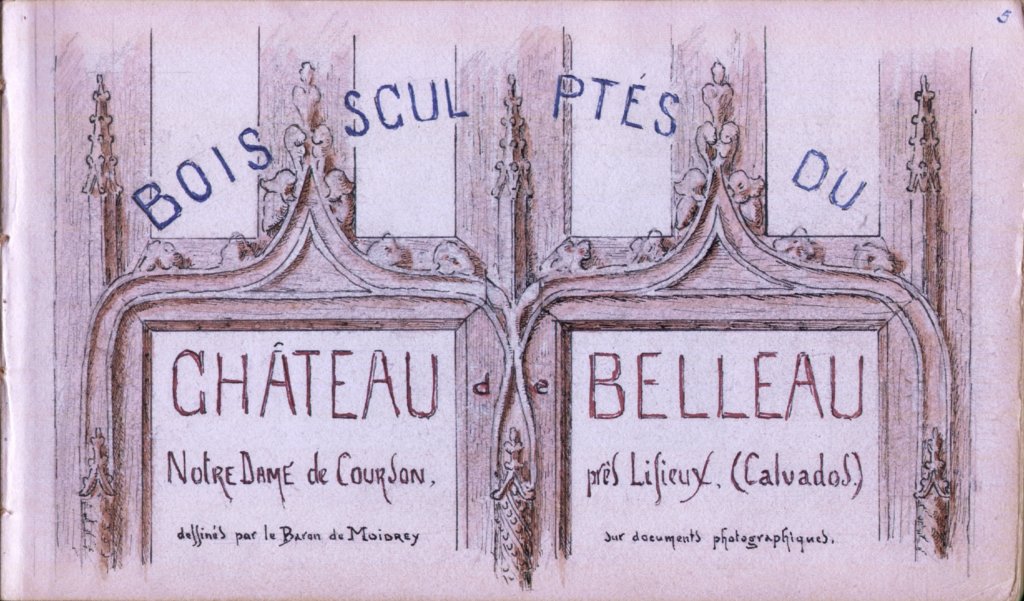 5
BOIS SCULPTÉS DU
CHÂTEAU de BELLEAU
NOTRE DAME de COURSON, près Lisieux, (Calvados)
dessinés par le Baron de MOIDREY sur documents photographiques.